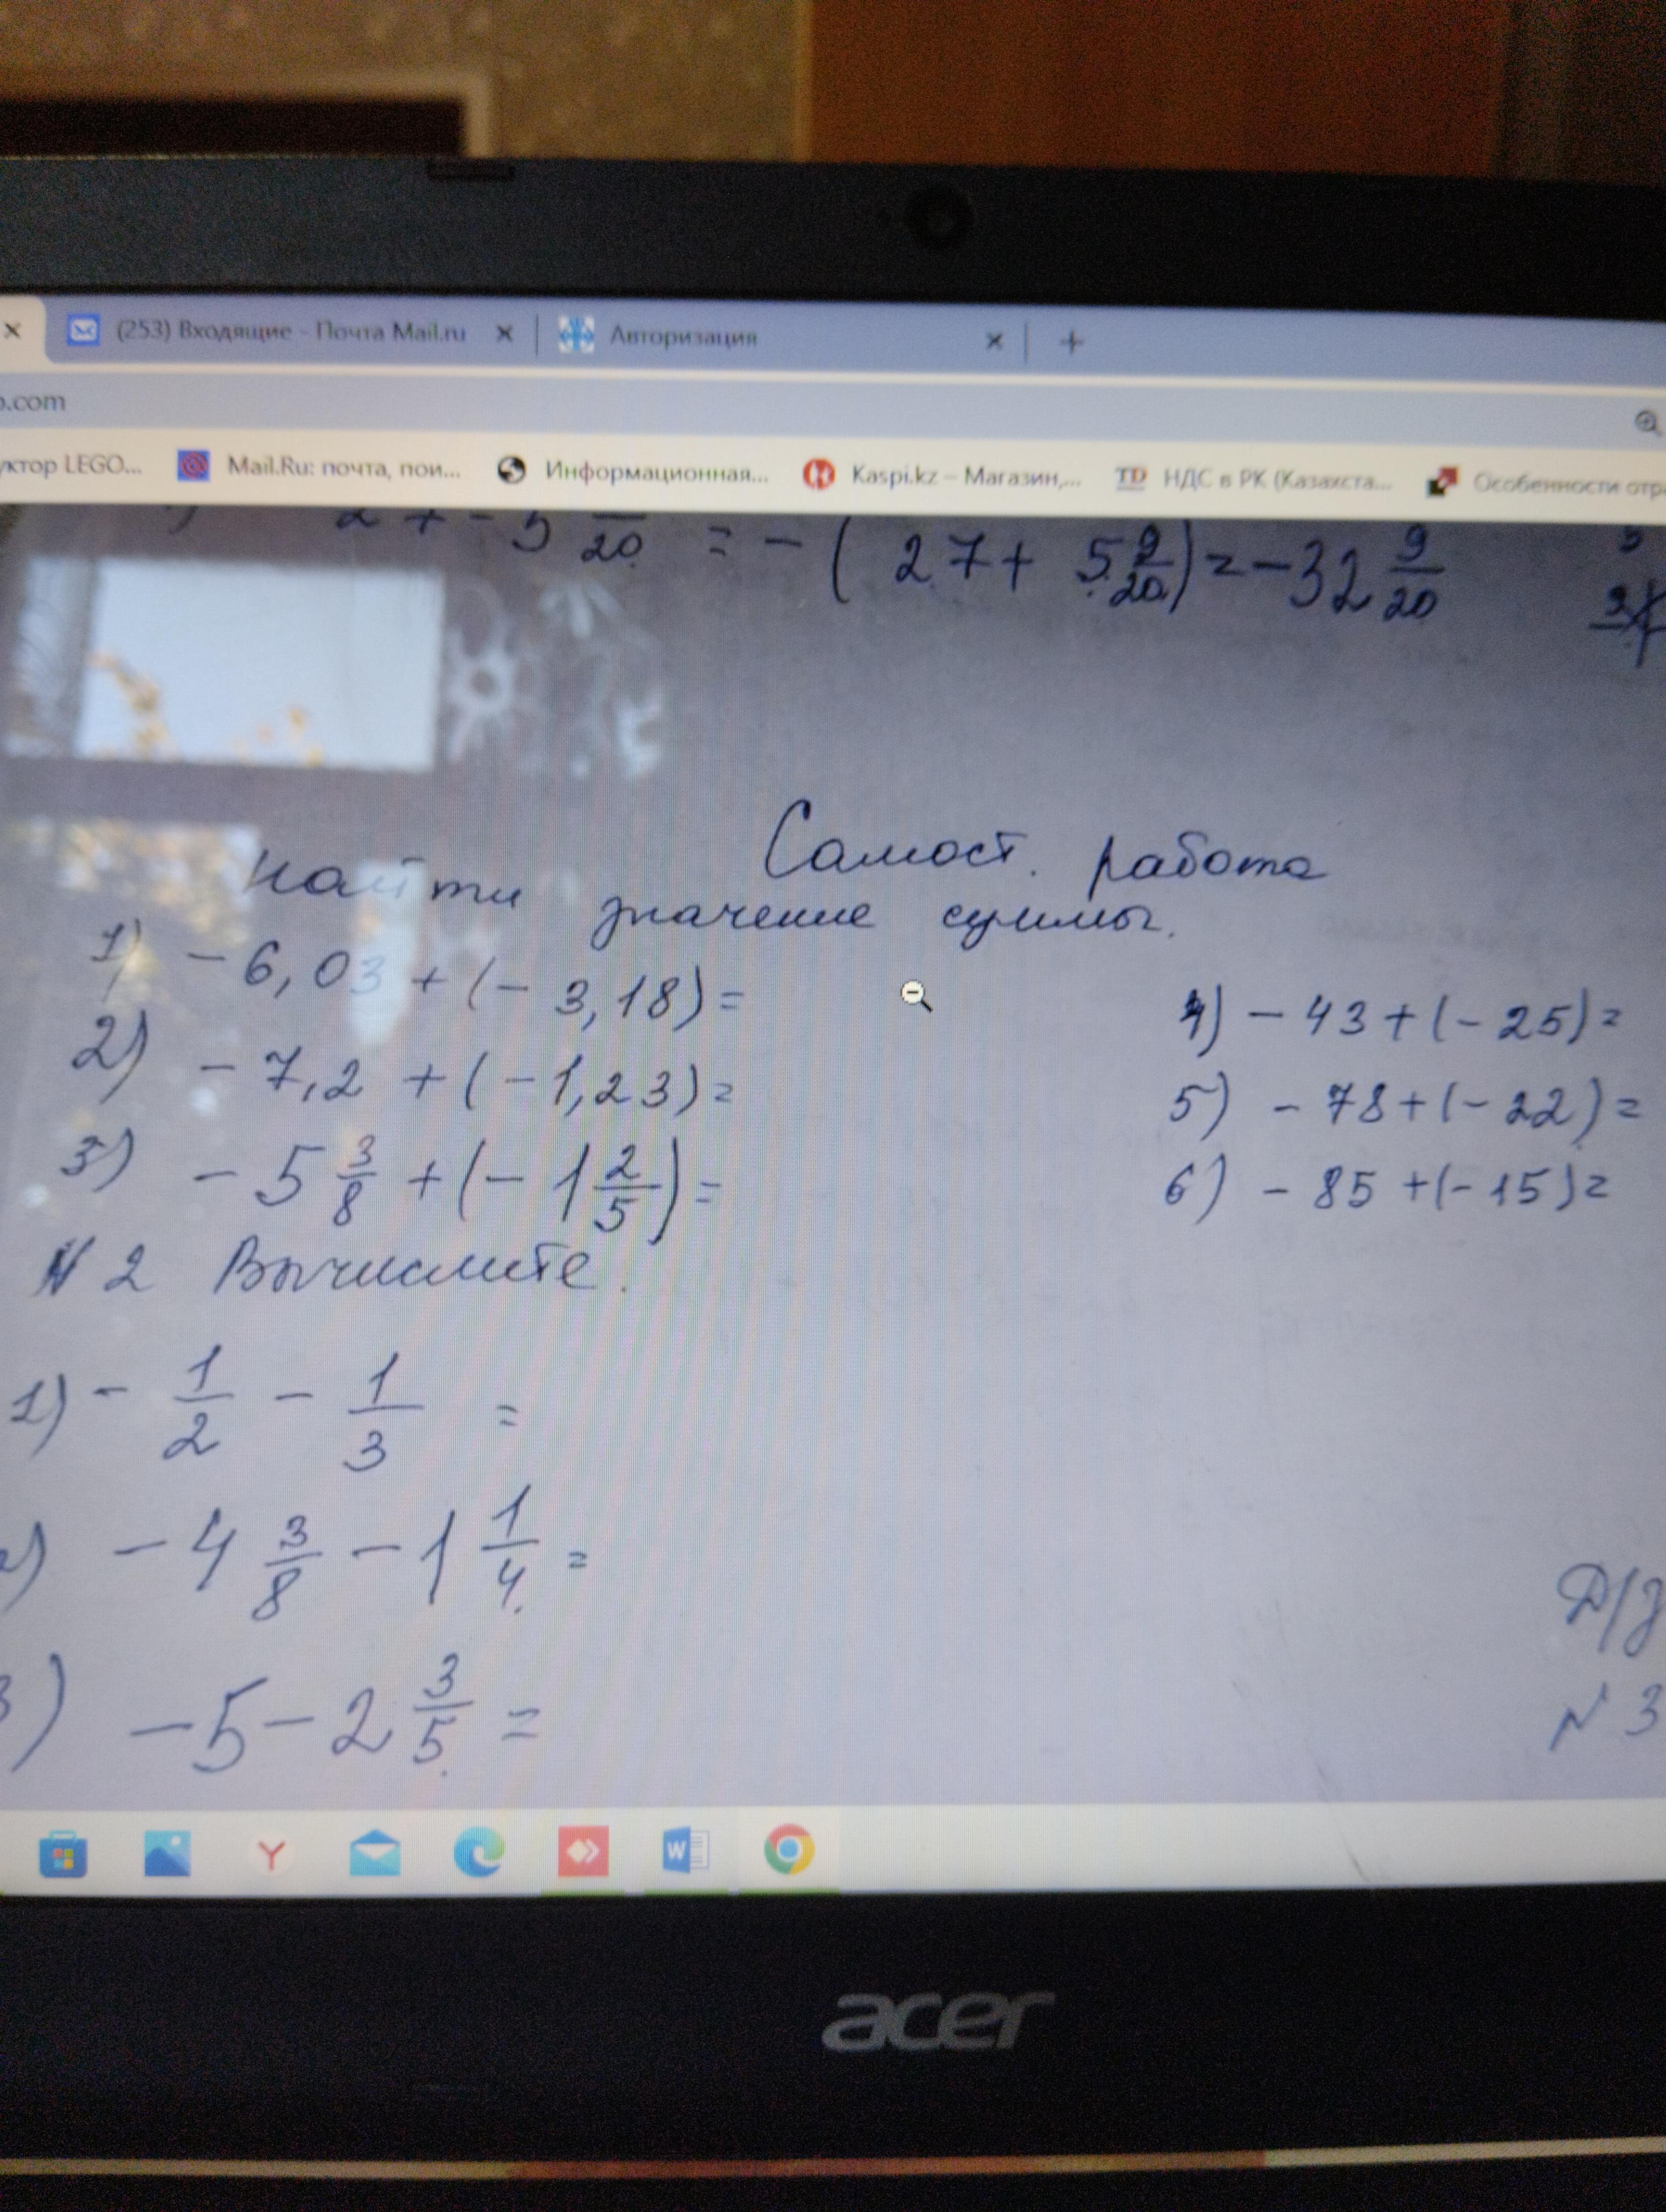 (253) Входящие - Почта Mail.ru Авторизация
.com
ктор LEGO... Mail.Ru: почта, пои... Информационная... Kaspi.kz – Магазин,... TD НДС в РК (Казахста... Особенности отр
27 + - 5 9/20 = - ( 27 + 5 9/20 ) = - 32 9/20
Самост. работа
Найти значение суммы.
1) - 6,03 + (- 3,18) =
4) - 43 + (- 25) =
2) - 7,2 + (- 1,23) =
5) - 78 + (- 22) =
3) - 5 3/8 + (- 1 2/5) =
6) - 85 + (- 15) =
N 2 Вычислите.
1) - 1/2 - 1/3 =
2) - 4 3/8 - 1 1/4 =
3) - 5 - 2 3/5 =
Д/з
N 3
acer